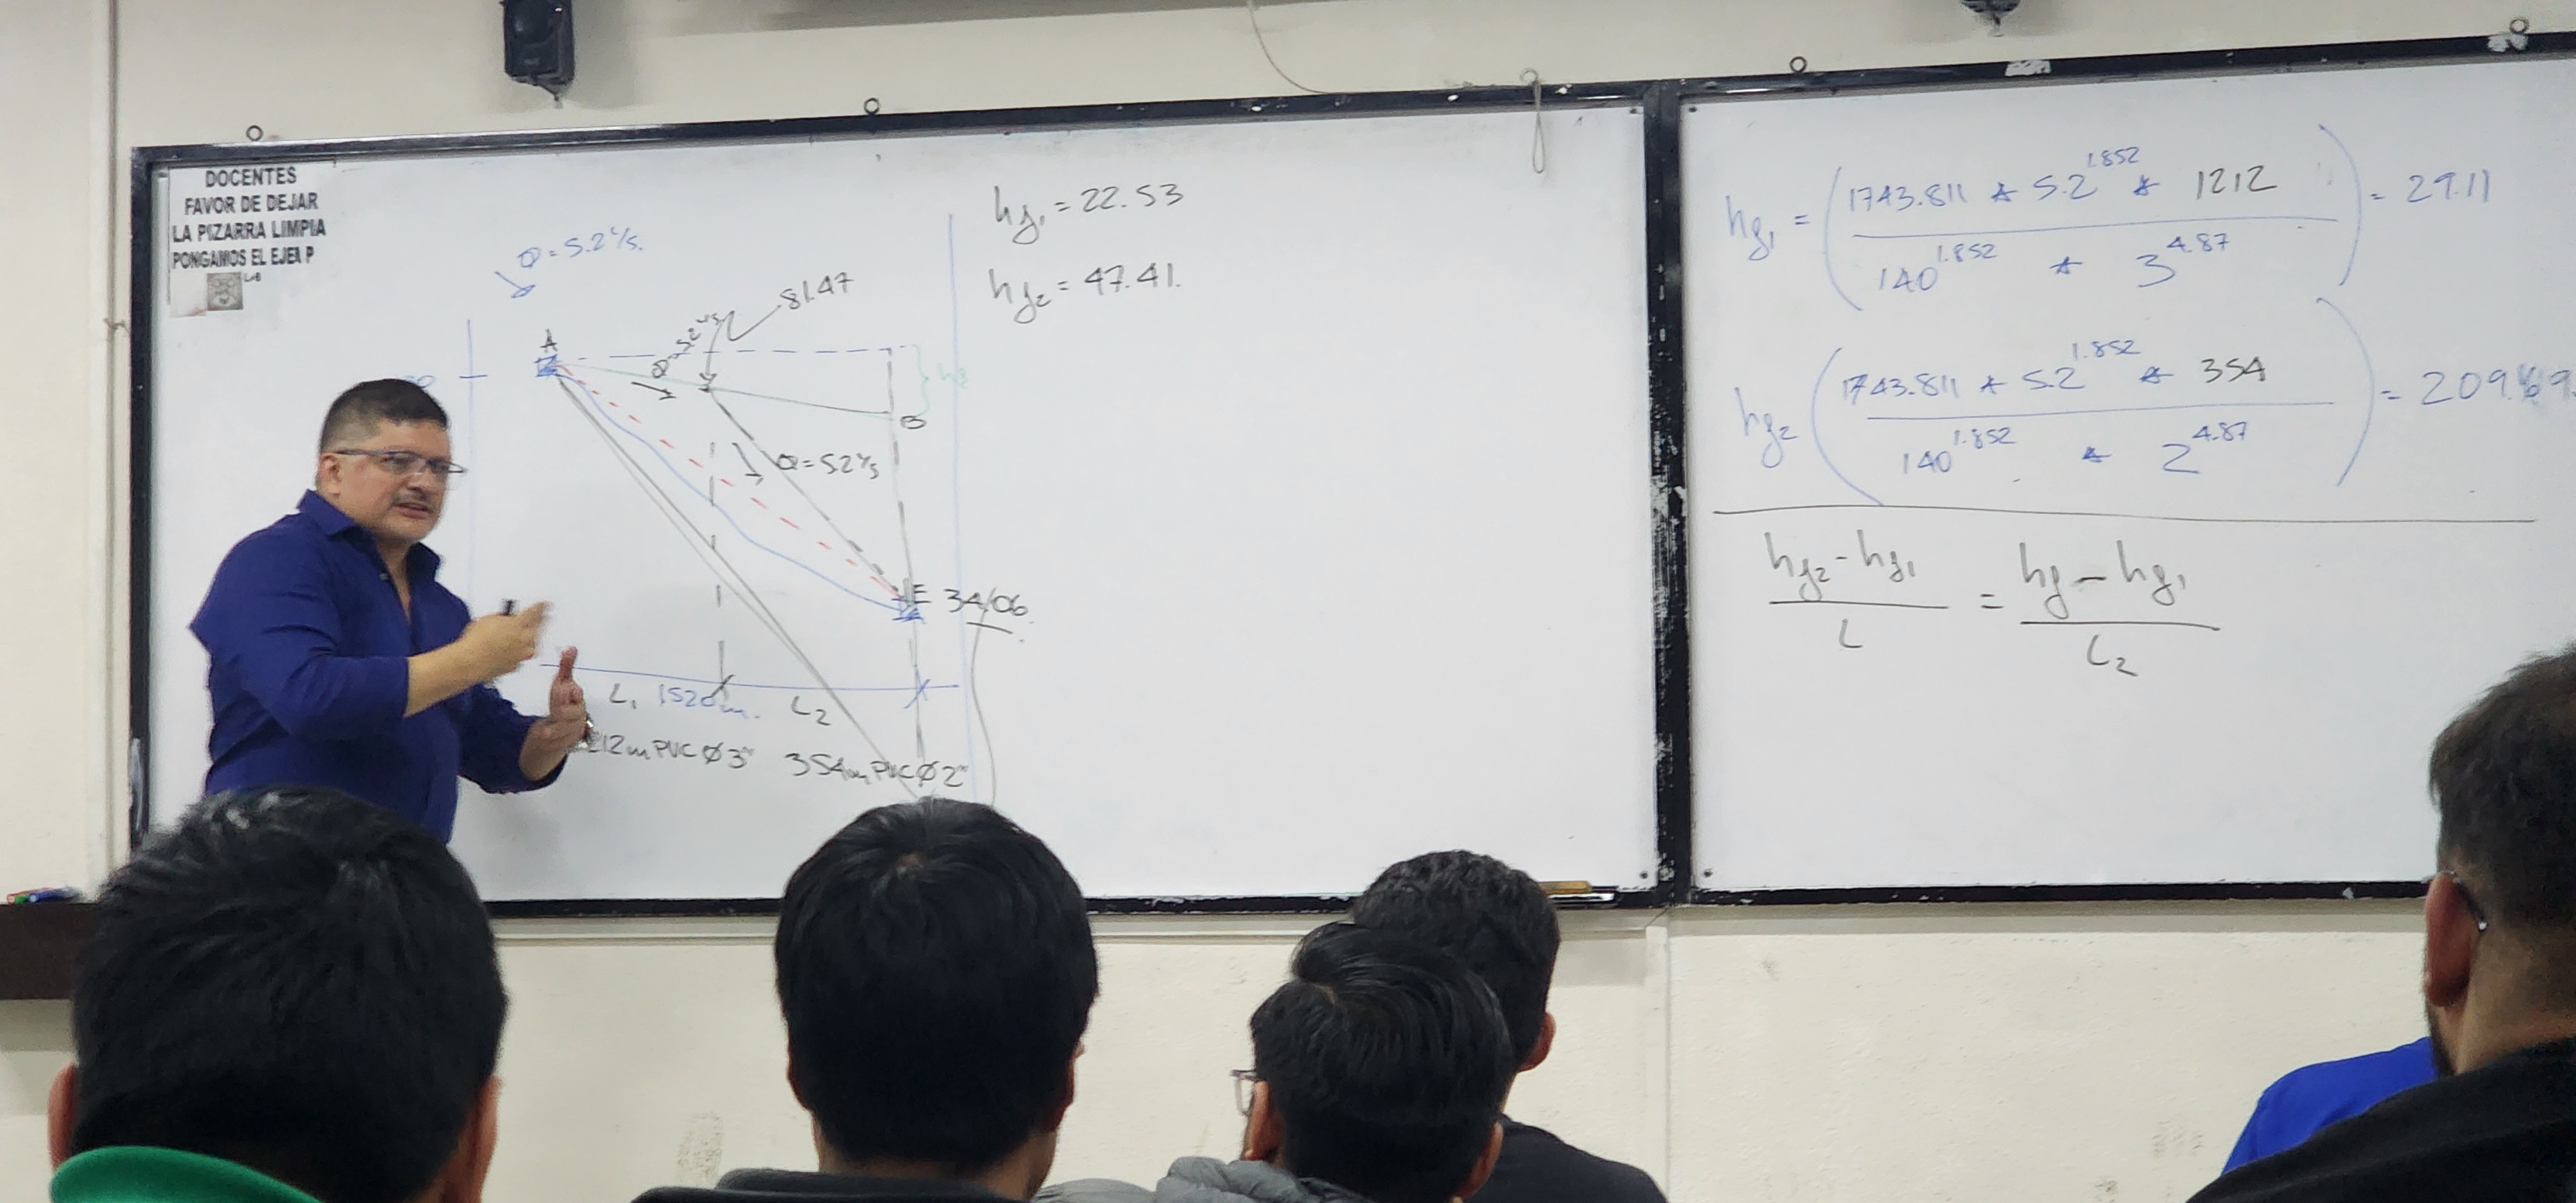 DOCENTES
FAVOR DE DEJAR
LA PIZARRA LIMPIA
PONGAMOS EL EJEM P
Q = 5.2 l/s.
A
Q=5.2 l/s
81.47
B
Q=5.2 l/s
E 34.06
L₁ 1520m. L₂
212m PVC Ø 3" 354m PVC Ø 2"
hf₁ = 22.53
hf₂ = 47.41.
hf₁ = (1743.811 * 5.2^1.852 * 1212 / 140^1.852 * 3^4.87) = 29.11
hf₂ (1743.811 * 5.2^1.852 * 354 / 140^1.852 * 2^4.87) = 209.69
hf₂ - hf₁ / L = hf - hf₁ / L₂